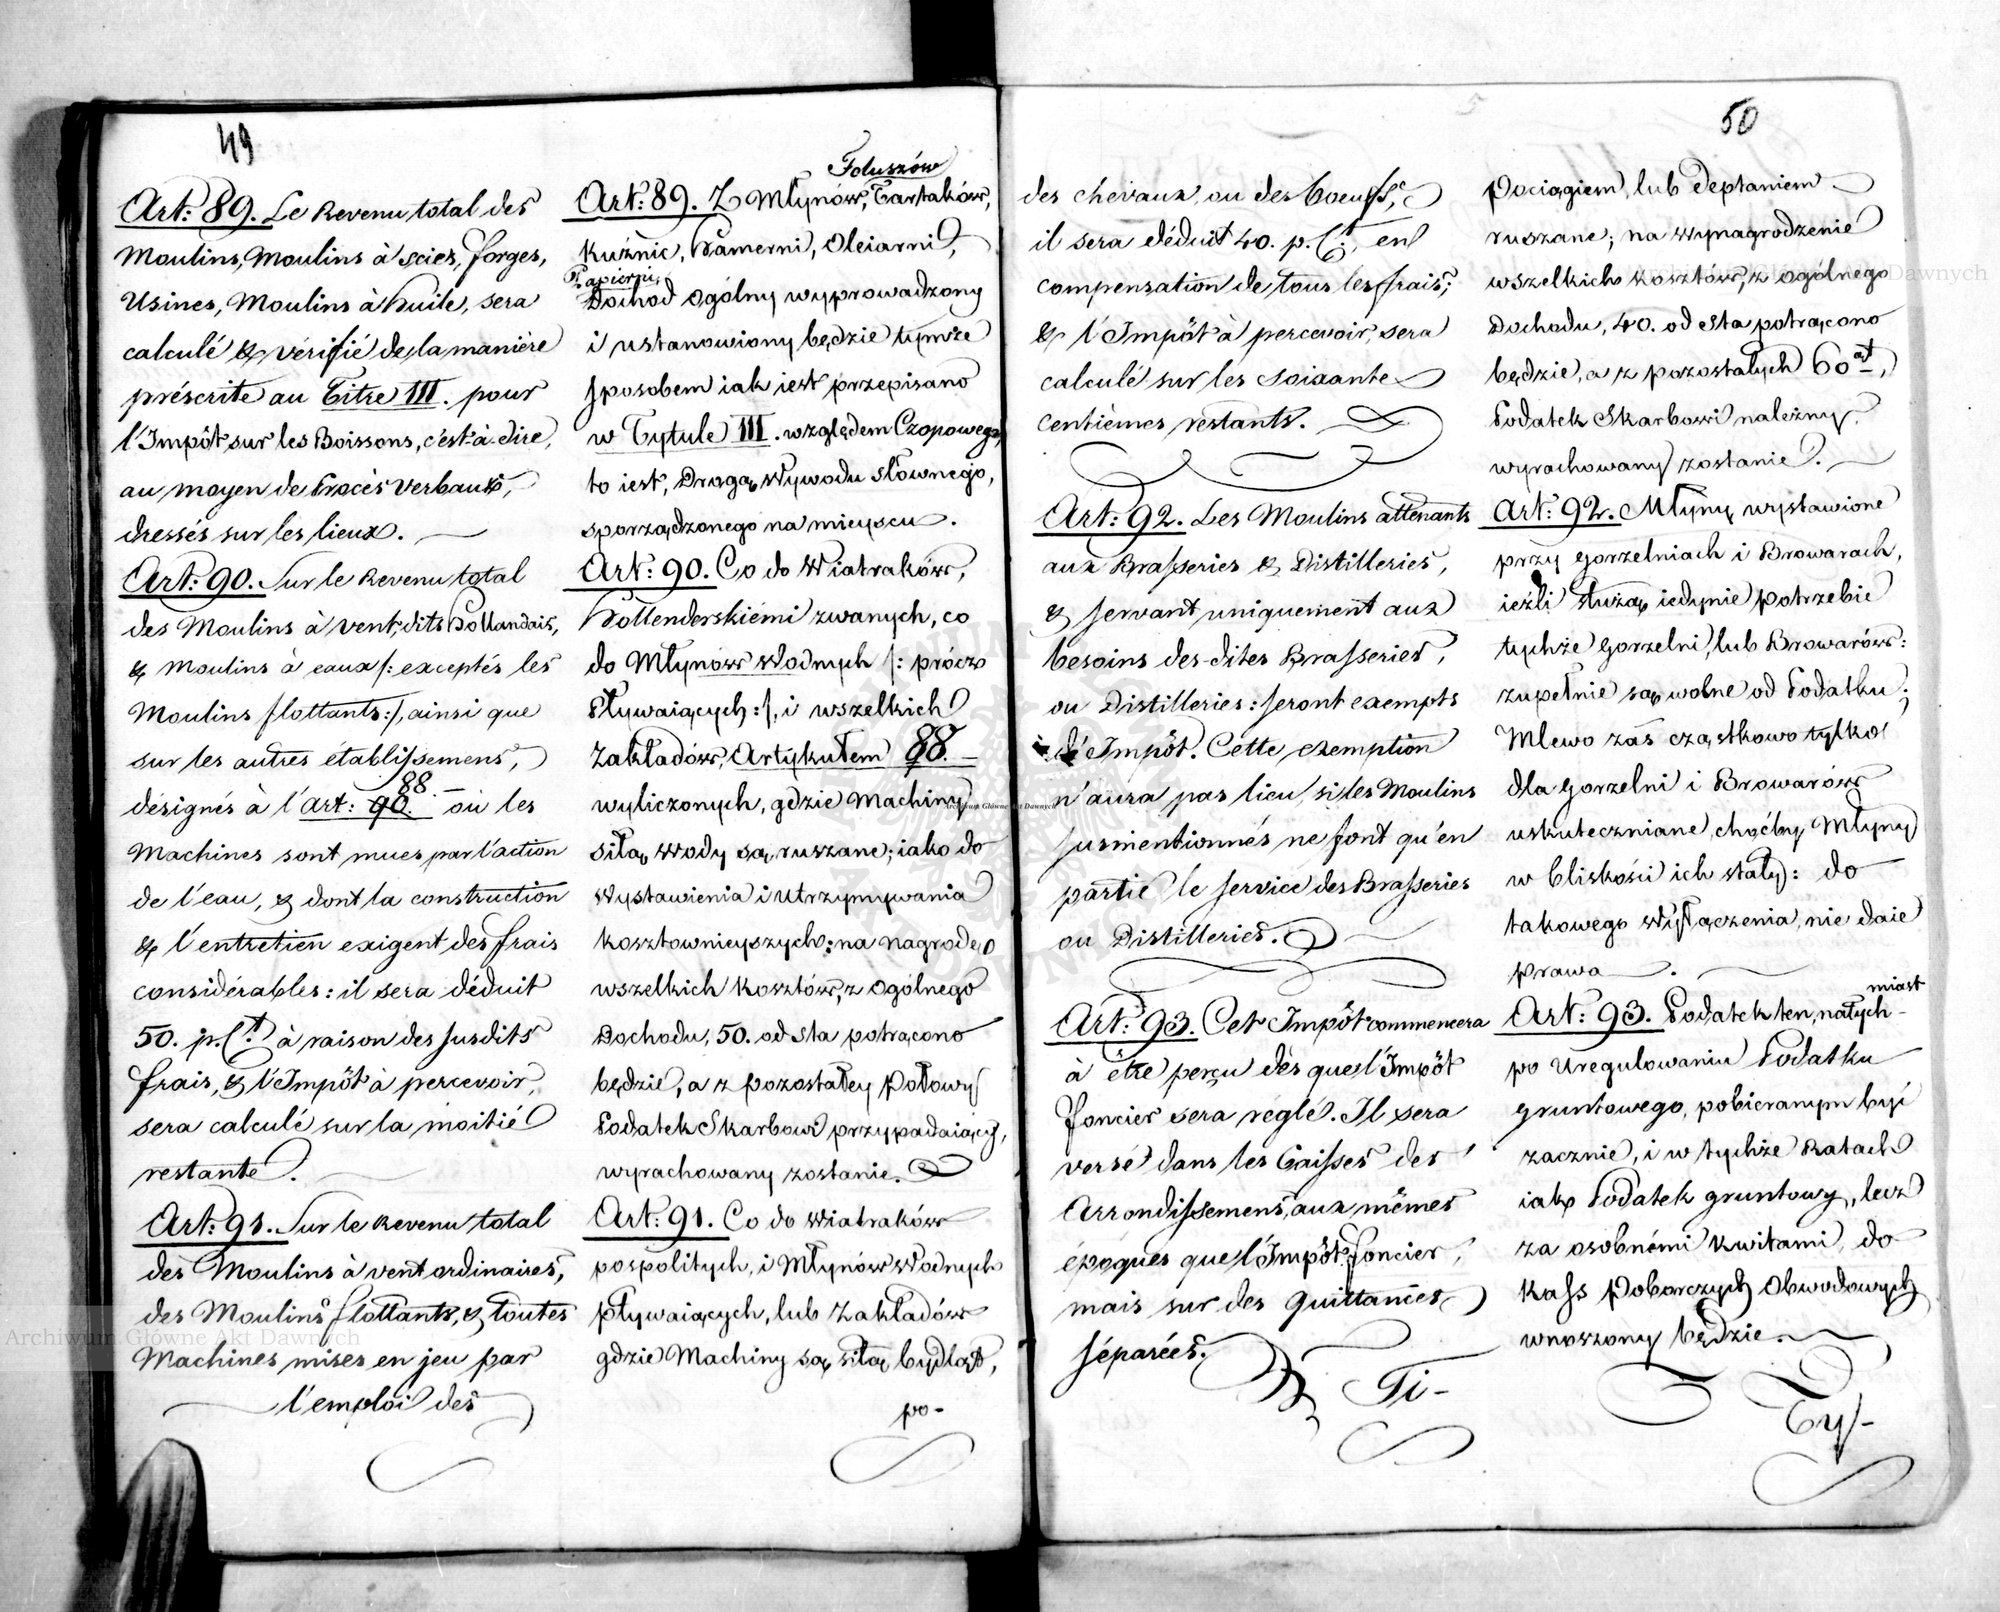 49
Art: 89. Le Revenu total des
Moulins, Moulins à scies, forges,
Usines, Moulins à huile, sera
calculé & vérifié de la manière
préscrite au Titre III. pour
l'Impôt sur les Boissons, c'est à dire,
au moyen de Procès verbaux,
dressés sur les lieux.
Art: 90. Sur le Revenu total
des Moulins à vent, dits hollandais,
& Moulins à eaux /: exceptés les
Moulins flottants :/, ainsi que
sur les autres établissemens,
88.
désignés à l'Art: 90. où les
Machines sont mues par l'action
de l'eau, & dont la construction
& l'entretien exigent des frais
considérables: il sera déduit
50. p. Ct. à raison des susdits
frais, & l'Impôt à percevoir,
sera calculé sur la moitié
restante.
Art: 91. Sur le Revenu total
des Moulins à vent ordinaires,
des Moulins flottants, & toutes
Machines mises en jeu par
l'emploi des
Foluszów
Art: 89. Z Młynów, Tartaków,
kuźnic, Hamerni, Oleiarni,
Papierni,
Dochod ogólny wyprowadzony
i ustanowiony będzie tymże
sposobem iak iest przepisano
w Tytule III. względem Czopowego,
to iest, Drogą Wywodu słownego,
sporządzonego na mieyscu.
Art: 90. Co do Wiatraków,
Hollenderskiemi zwanych, co
do Młynów Wodnych /: prócz
Pływaiących :/, i wszelkich
Zakładów, Artykułem 88.
wyliczonych, gdzie Machiny
siłą Wody są ruszane; iako do
Wystawienia i utrzymywania
kosztownieyszych: na nagrodę
wszelkich kosztów, z ogólnego
Dochodu, 50. od Sta potrącono
będzie, a z pozostałey Połowy
Podatek Skarbowi przypadaiący,
wyrachowany zostanie.
Art: 91. Co do Wiatraków
pospolitych, i Młynów Wodnych
pływaiących, lub Zakładów
gdzie Machiny są siłą bydląt,
po-
50
des chevaux, ou des boeufs,
il sera déduit 40. p. Ct., en
compensation de tous les frais;
& l'Impôt à percevoir, sera
calculé sur les soixante
centièmes restants.
Art: 92. Les Moulins attenants
aux Brasseries & Distilleries,
& servant uniquement aux
besoins des-dites Brasseries,
ou Distilleries: seront exempts
d'Impôt. Cette exemption
n'aura pas lieu, si les Moulins
susmentionnés ne font qu'en
partie le service des Brasseries
ou Distilleries.
Art: 93. Cet Impôt commencera
à être perçu dès que l'Impôt
foncier sera réglé. Il sera
versé dans les Caisses des
Arrondissemens, aux mêmes
époques que l'Impôt foncier,
mais sur des quittances
séparées.
Ti-
Pociągiem, lub deptaniem
ruszane; na wynagrodzenie
wszelkich kosztów, z ogólnego
Dochodu, 40. od Sta potrącono
będzie, a z pozostałych 60at,
Podatek Skarbowi należny,
wyrachowany zostanie.
Art: 92. Młyny wystawione
przy Gorzelniach i Browarach,
ieźli służą iedynie potrzebie
tychże Gorzelni, lub Browarów:
zupełnie są wolne od Podatku;
Mlewo zaś cząstkowo tylko
dla Gorzelni i Browarów
uskuteczniane, choćby Młyny
w bliskości ich stały: do
takowego Wyłączenia, nie daie
prawa.
miast
Art: 93. Podatek ten, natych-
po Uregulowaniu Podatku
gruntowego, pobieranym być
zacznie, i w tychże Ratach
iak Podatek gruntowy, lecz
za osobnémi kwitami, do
Kass Poborczych Obwodowych
wnoszony będzie.
Ty-
Archiwum Główne Akt Dawnych